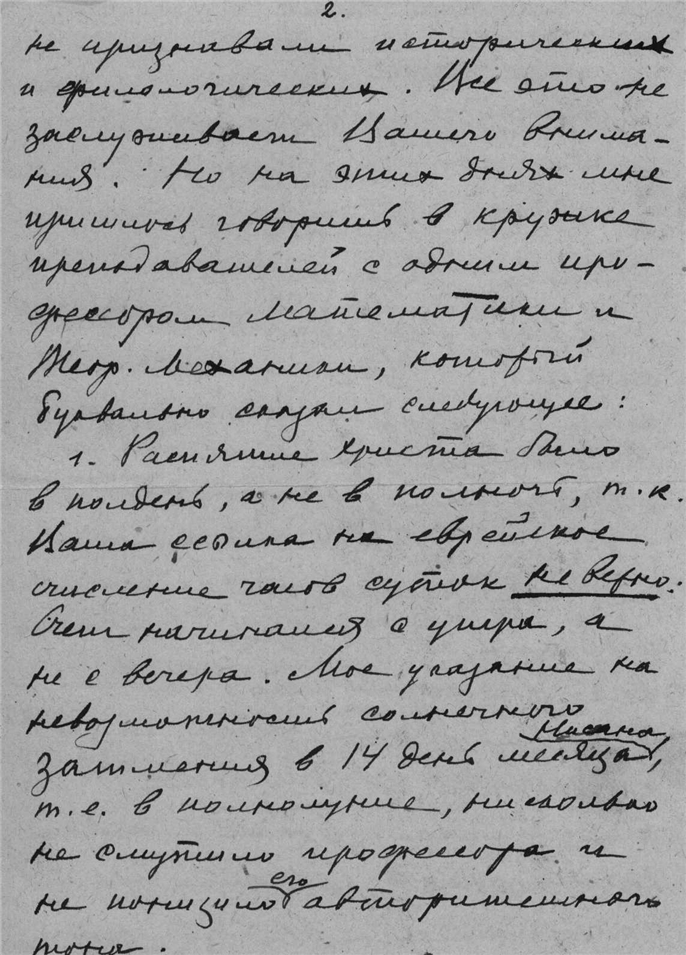 2.
не признавали исторических
и филологических. Все это не
заслуживает Вашего внима-
ния. Но на этих днях мне
пришлось говорить в кружке
преподавателей с одним про-
фессором математики и
теор. механики, который
буквально сказал следующее:
1. Распятие Христа было
в полдень, а не в полночь, т.к.
Ваша ссылка на еврейское
счисление часов суток не верно.
Счет начинался с утра, а
не с вечера. Мое указание на
невозможность солнечного
Нисана,
затмения в 14 день месяца,
т.е. в полнолуние, нисколько
не смутило профессора и
его
не понизило авторитетного
тона.